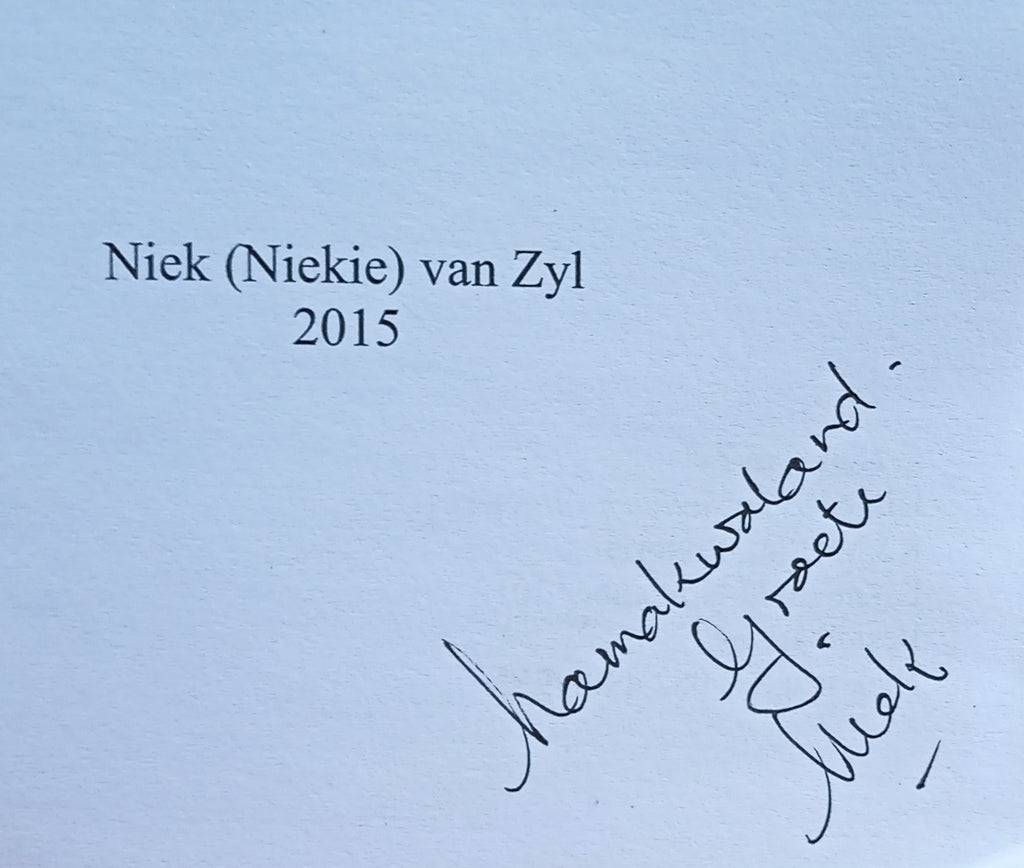 Niek (Niekie) van Zyl
2015
Namakwaland.
Groete
Niek